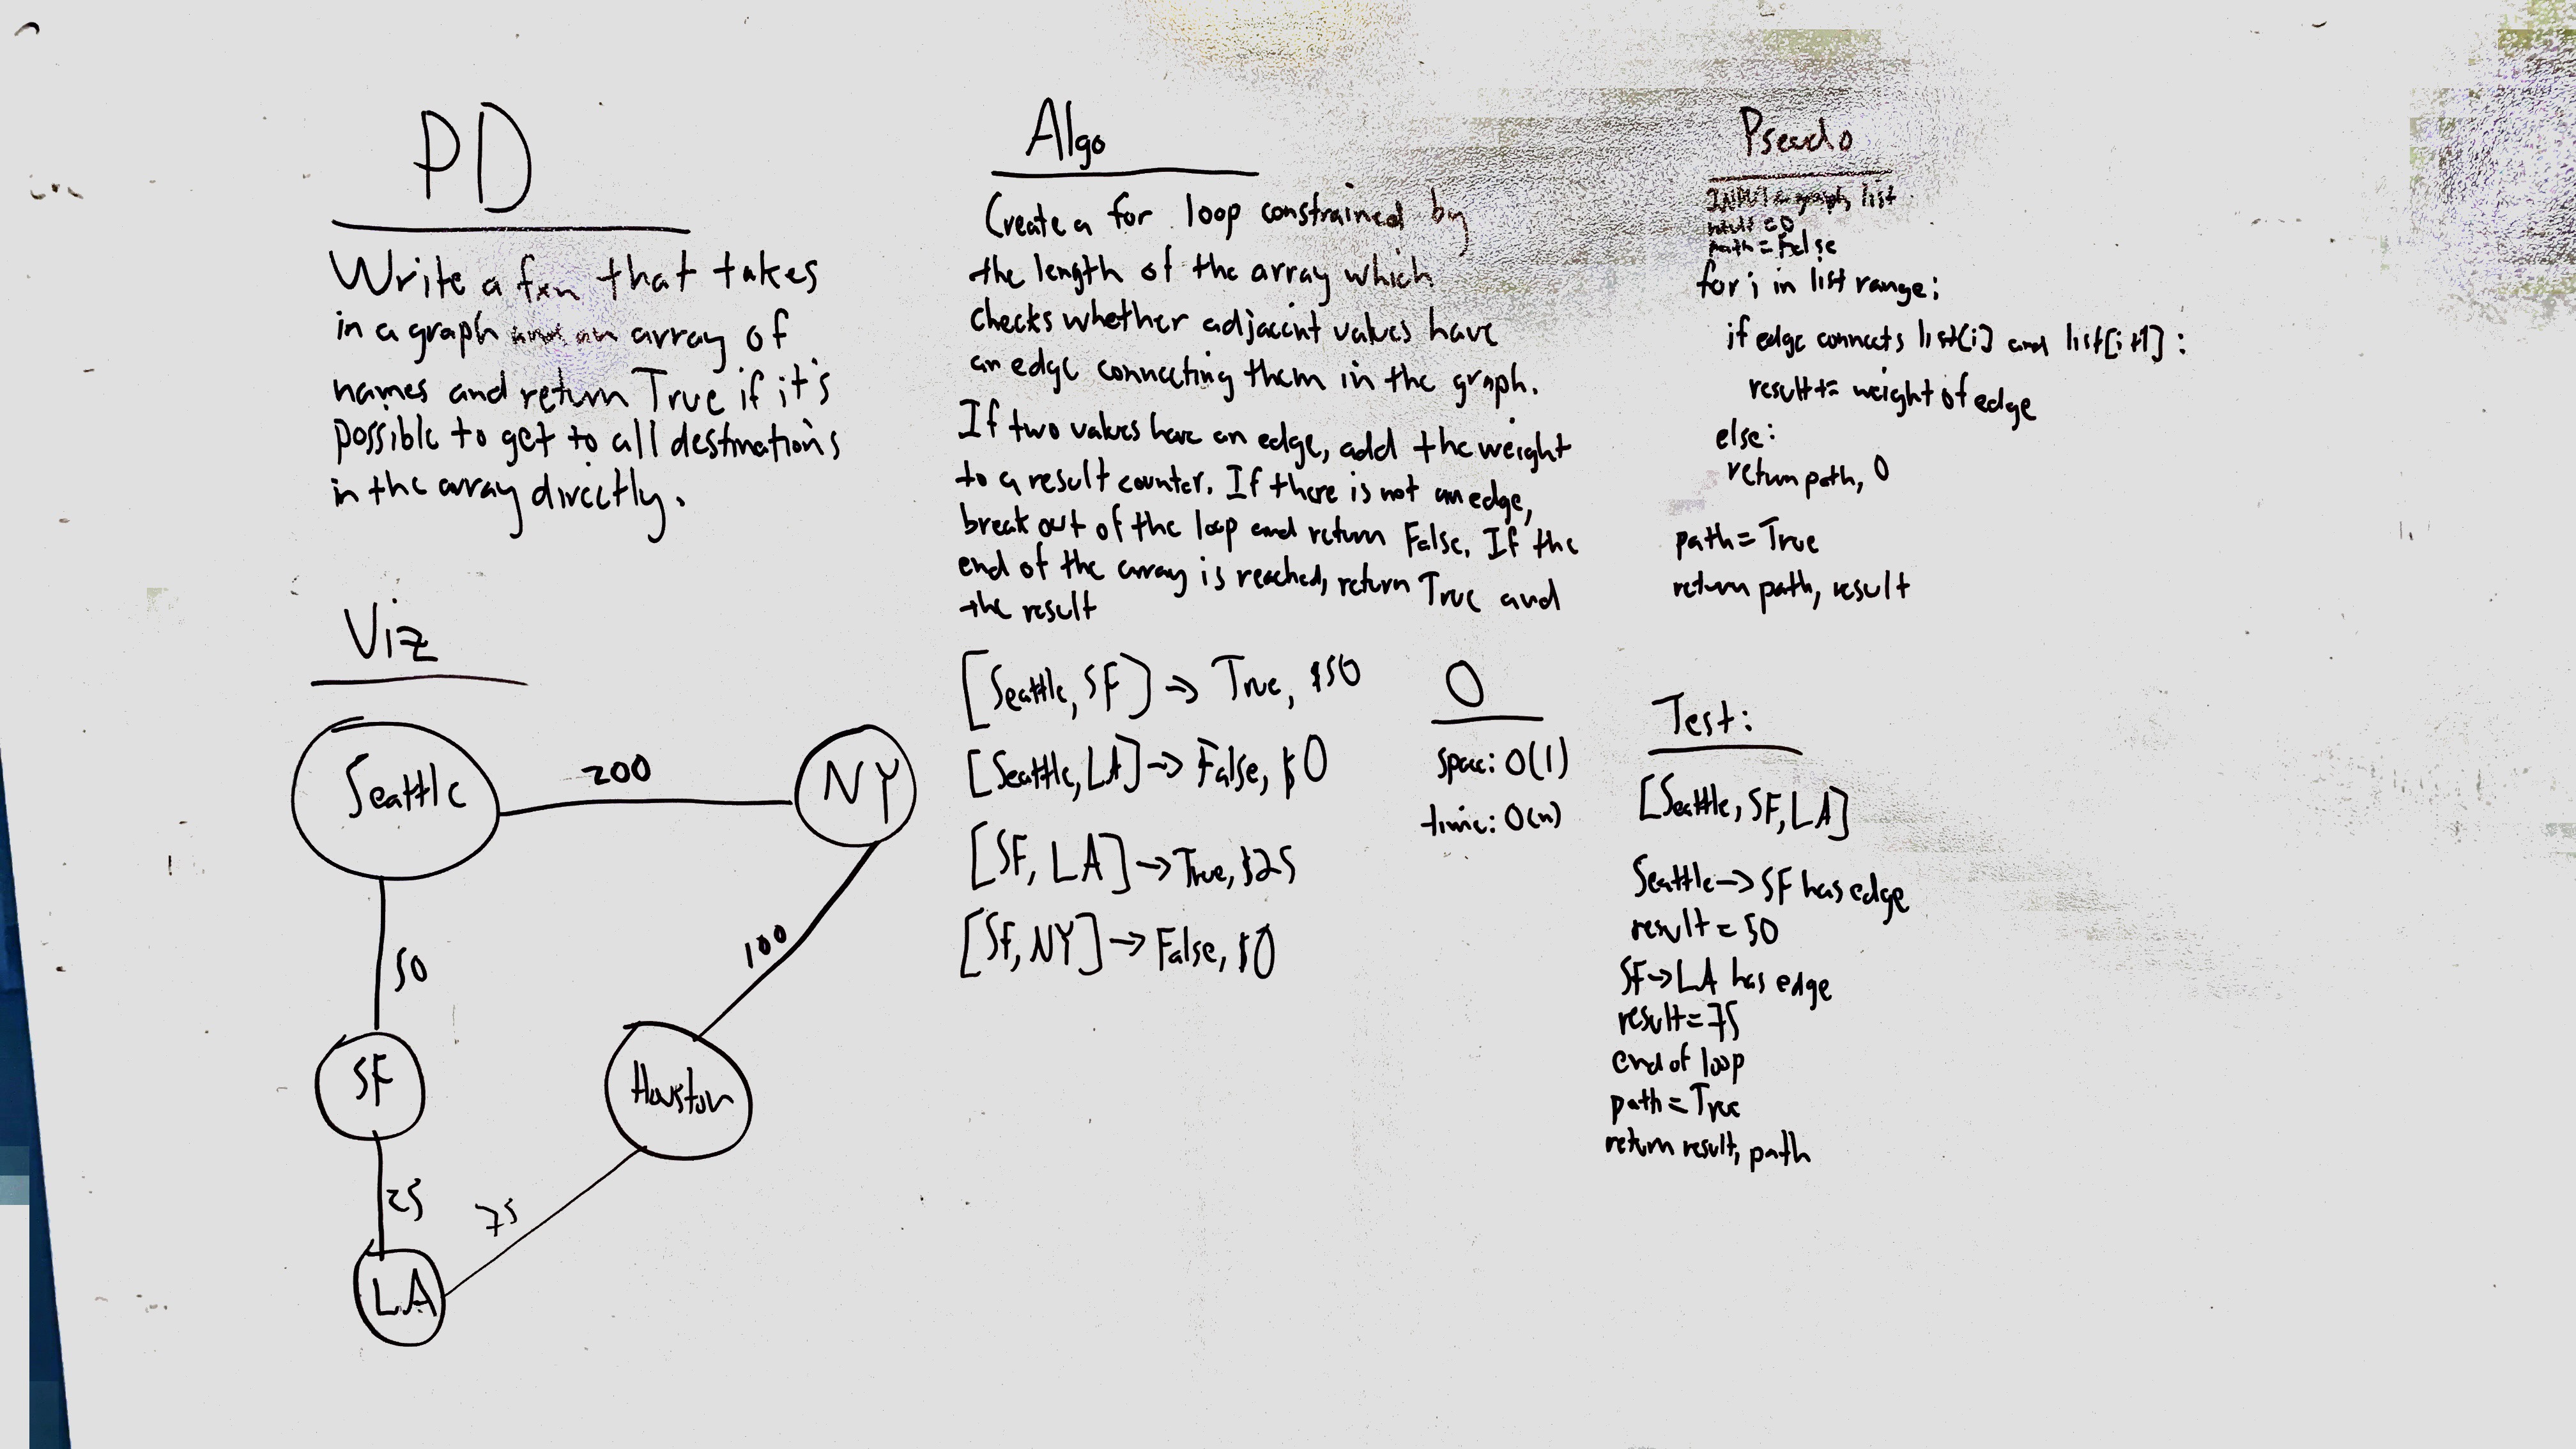 PD
Write a fxn that takes
in a graph and an array of
names and return True if it's
possible to get to all destinations
in the array directly.
Viz
Seattle
200
NY
50
100
SF
Houston
25
75
LA
Algo
Create a for loop constrained by
the length of the array which
checks whether adjacent values have
an edge connecting them in the graph.
If two values have an edge, add the weight
to a result counter. If there is not an edge,
break out of the loop and return False. If the
end of the array is reached, return True and
the result
[Seattle, SF] → True, $50
[Seattle, LA] → False, $0
[SF, LA] → True, $25
[SF, NY] → False, $0
O
space: O(1)
time: O(n)
Pseudo
INPUT graph, list
result = 0
path = False
for i in list range:
if edge connects list[i] and list[i+1]:
result += weight of edge
else:
return path, 0
path = True
return path, result
Test:
[Seattle, SF, LA]
Seattle → SF has edge
result = 50
SF → LA has edge
result = 75
end of loop
path = True
return result, path